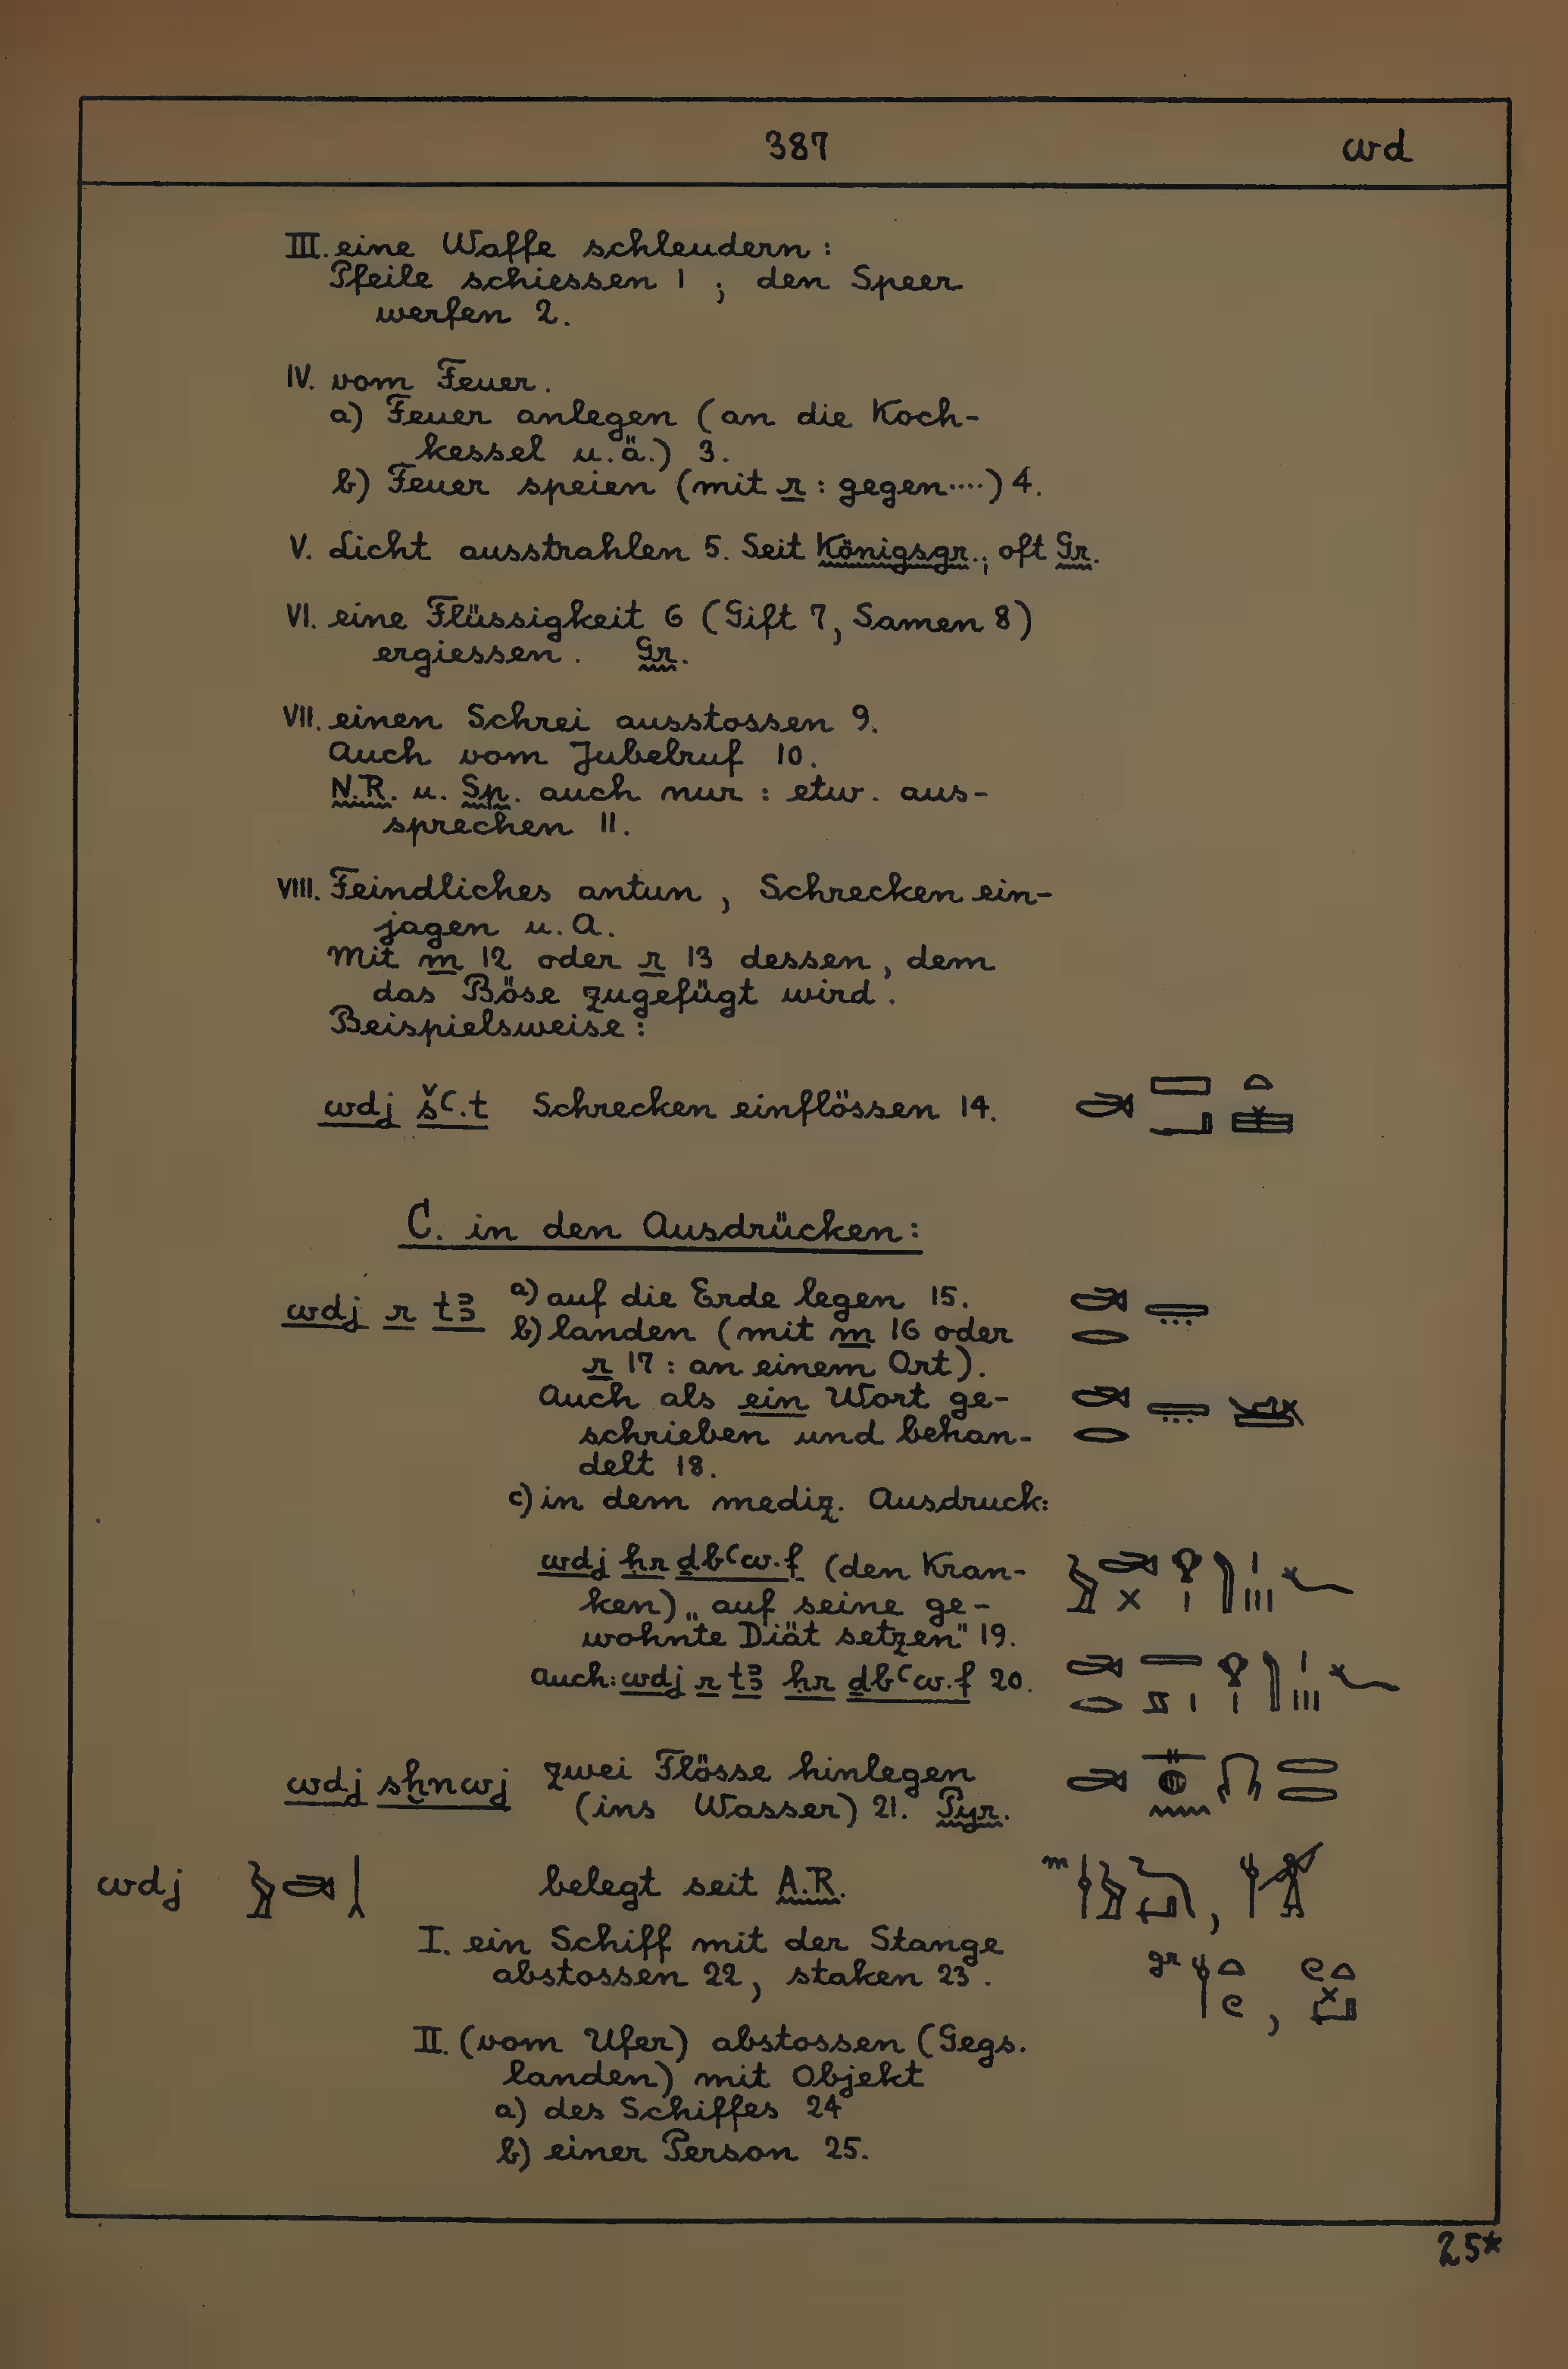 387 wd
III. eine Waffe schleudern :
Pfeile schiessen 1 ; den Speer
werfen 2.
IV. vom Feuer.
a) Feuer anlegen (an die Koch-
kessel u.ä.) 3.
b) Feuer speien (mit r : gegen....) 4.
V. Licht ausstrahlen 5. Seit Königsgr., oft Gr.
VI. eine Flüssigkeit 6 (Gift 7, Samen 8)
ergiessen. Gr.
VII. einen Schrei ausstossen 9.
Auch vom Jubelruf 10.
N.R. u. Sp. auch nur : etw. aus-
sprechen 11.
VIII. Feindliches antun, Schrecken ein-
jagen u. A.
Mit m 12 oder r 13 dessen, dem
das Böse zugefügt wird.
Beispielsweise :
wdj šꜥ.t Schrecken einflössen 14.
C. in den Ausdrücken:
wdj r tꜣ a) auf die Erde legen 15.
b) landen (mit m 16 oder
r 17 : an einem Ort).
Auch als ein Wort ge-
schrieben und behan-
delt 18.
c) in dem mediz. Ausdruck:
wdj ḥr ḏbꜥw.f (den Kran-
ken) „auf seine ge-
wohnte Diät setzen" 19.
Auch: wdj r tꜣ ḥr ḏbꜥw.f 20.
wdj sḫnwj zwei Flösse hinlegen
(ins Wasser) 21. Pyr.
wdj belegt seit A.R. m
I. ein Schiff mit der Stange
abstossen 22, staken 23. gr
II. (vom Ufer) abstossen (Gegs.
landen) mit Objekt
a) des Schiffes 24
b) einer Person 25.
25*